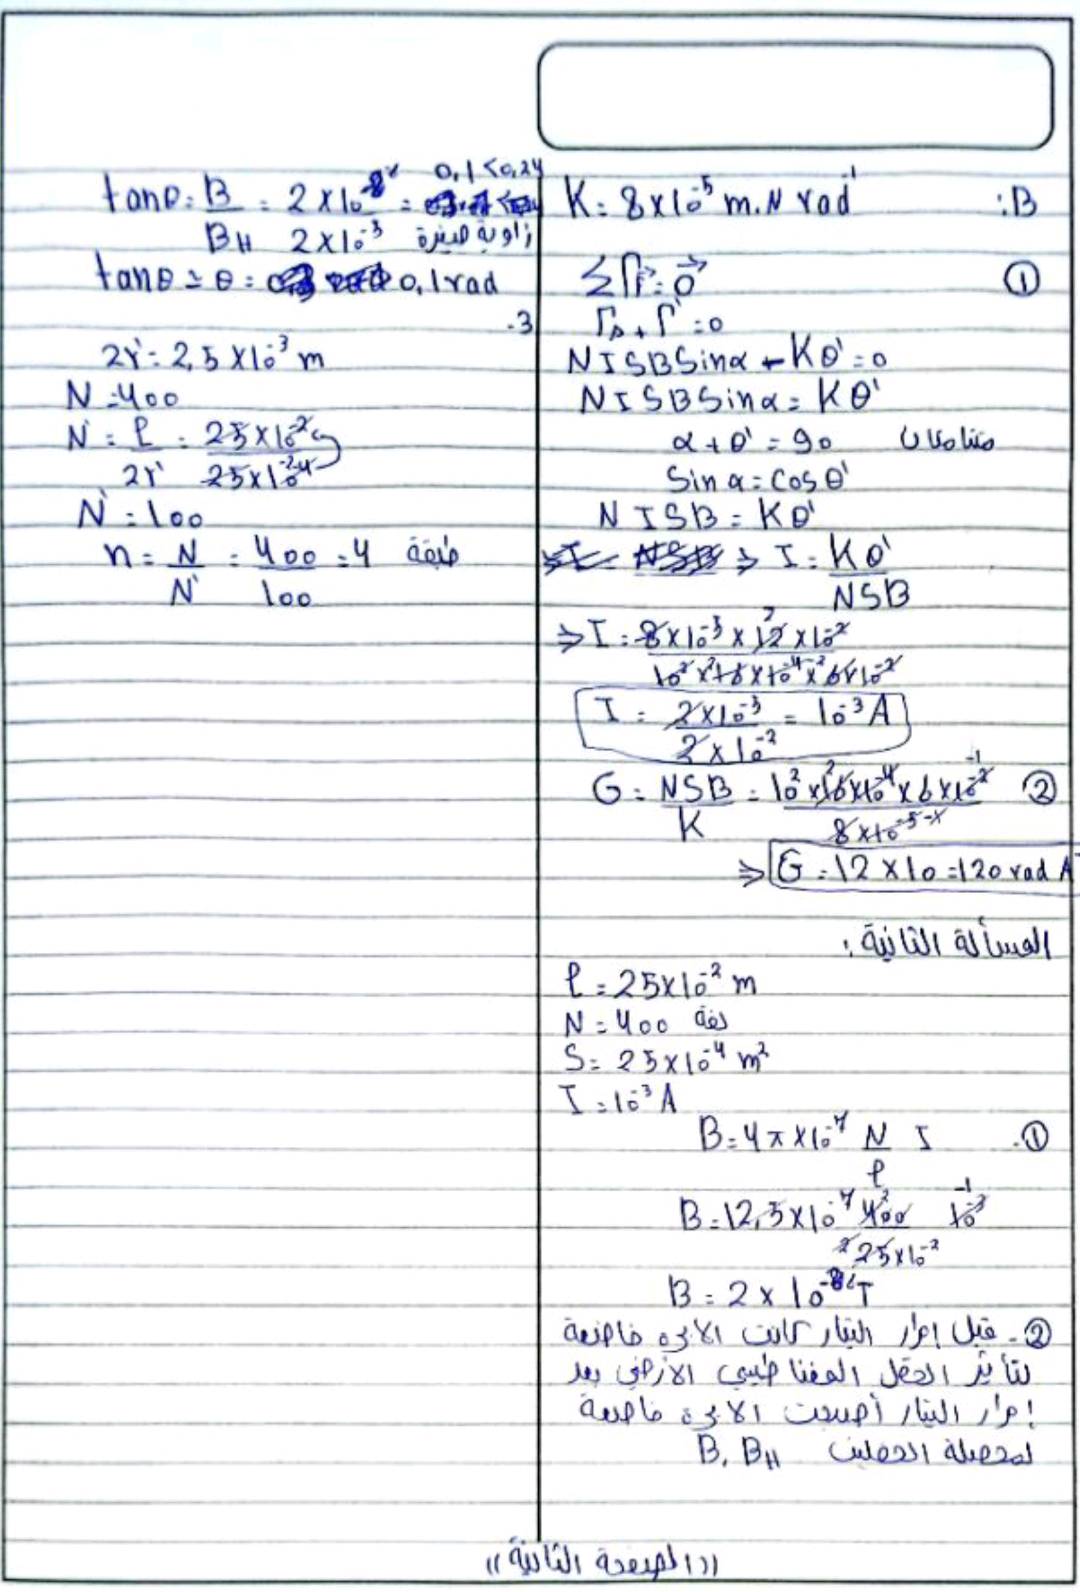 B:
K = 8×10⁻⁵ m.N rad⁻¹
①
ΣΓ⃗ = 0⃗
Γ_Δ + Γ' = 0
NISB Sinα - Kθ' = 0
NISB Sinα = Kθ'
α + θ' = 90 متتامتان
Sin α = Cos θ'
NISB = Kθ'
⇒ I = Kθ' / NSB
⇒ I = 8×10⁻⁵ × 12 × 10⁻² / 10² × 16 × 10⁻⁴ × 6×10⁻²
I = 2×10⁻⁵ / 2×10⁻² = 10⁻³ A
② G = NSB / K = 10² × 16×10⁻⁴ × 6×10⁻² / 8×10⁻⁵
⇒ G = 12 × 10 = 120 rad A⁻
المسألة الثانية:
ℓ = 25×10⁻² m
N = 400 لفة
S = 25×10⁻⁴ m²
I = 10⁻³ A
①- B = 4π×10⁻⁷ N/ℓ I
B = 12,5×10⁻⁷ 400 / 25×10⁻² 10⁻³
B = 2 × 10⁻⁶ T
②- قبل إمرار التيار كانت الابرة خاضعة
لتأثير الحقل المغناطيسي الأرضي بعد
إمرار التيار أصبحت الابرة خاضعة
لمحصلة الحقلين B, B_H
tanθ = B / B_H = 2×10⁻ / 2×10⁻⁵ = 0,1 < 0,24
زاوية صغيرة
tanθ ≃ θ = 0,1 rad
3-
2r' = 2,5×10⁻³ m
N = 400
N' = ℓ / 2r' = 25×10⁻² / 25×10⁻⁴
N' = 100
n = N / N' = 400 / 100 = 4 طبقة
((الصفحة الثانية))